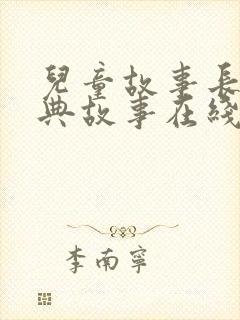 兒童故事長
典故事在綫
李南寧